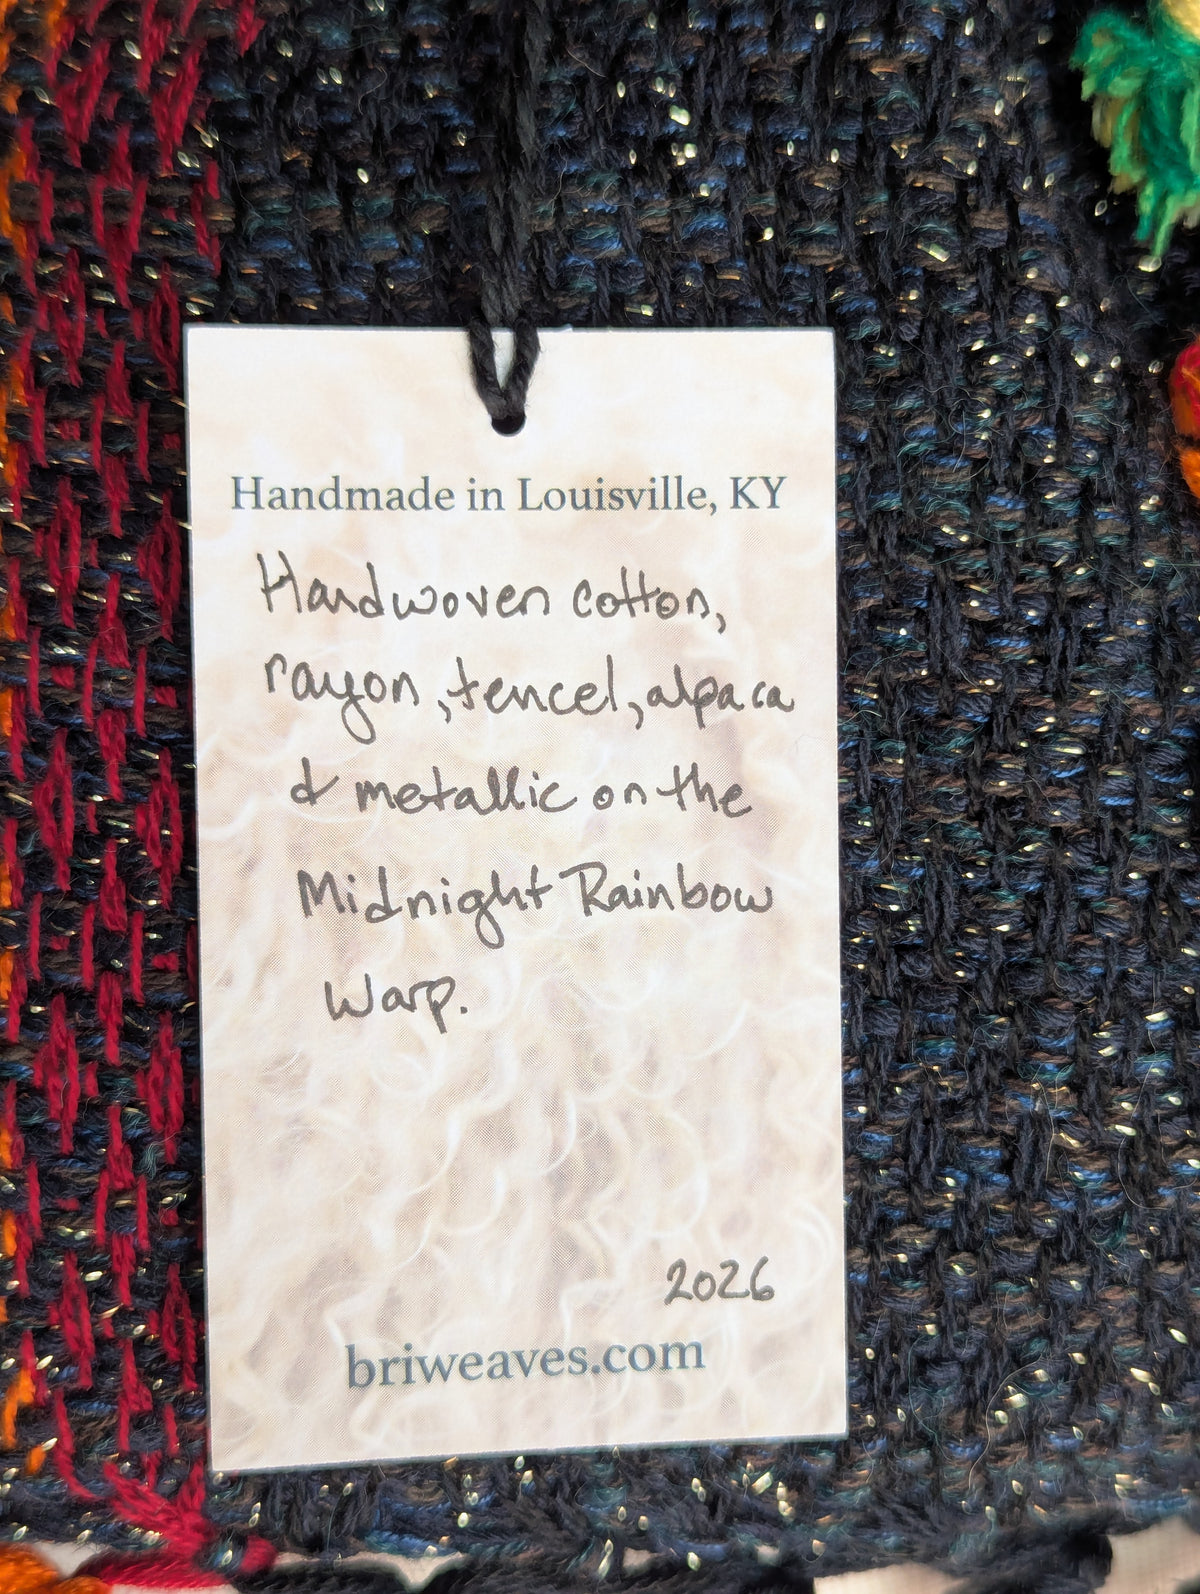 Handmade in Louisville, KY
Handwoven cotton,
rayon, tencel, alpaca
& metallic on the
Midnight Rainbow
Warp.
2026
briweaves.com